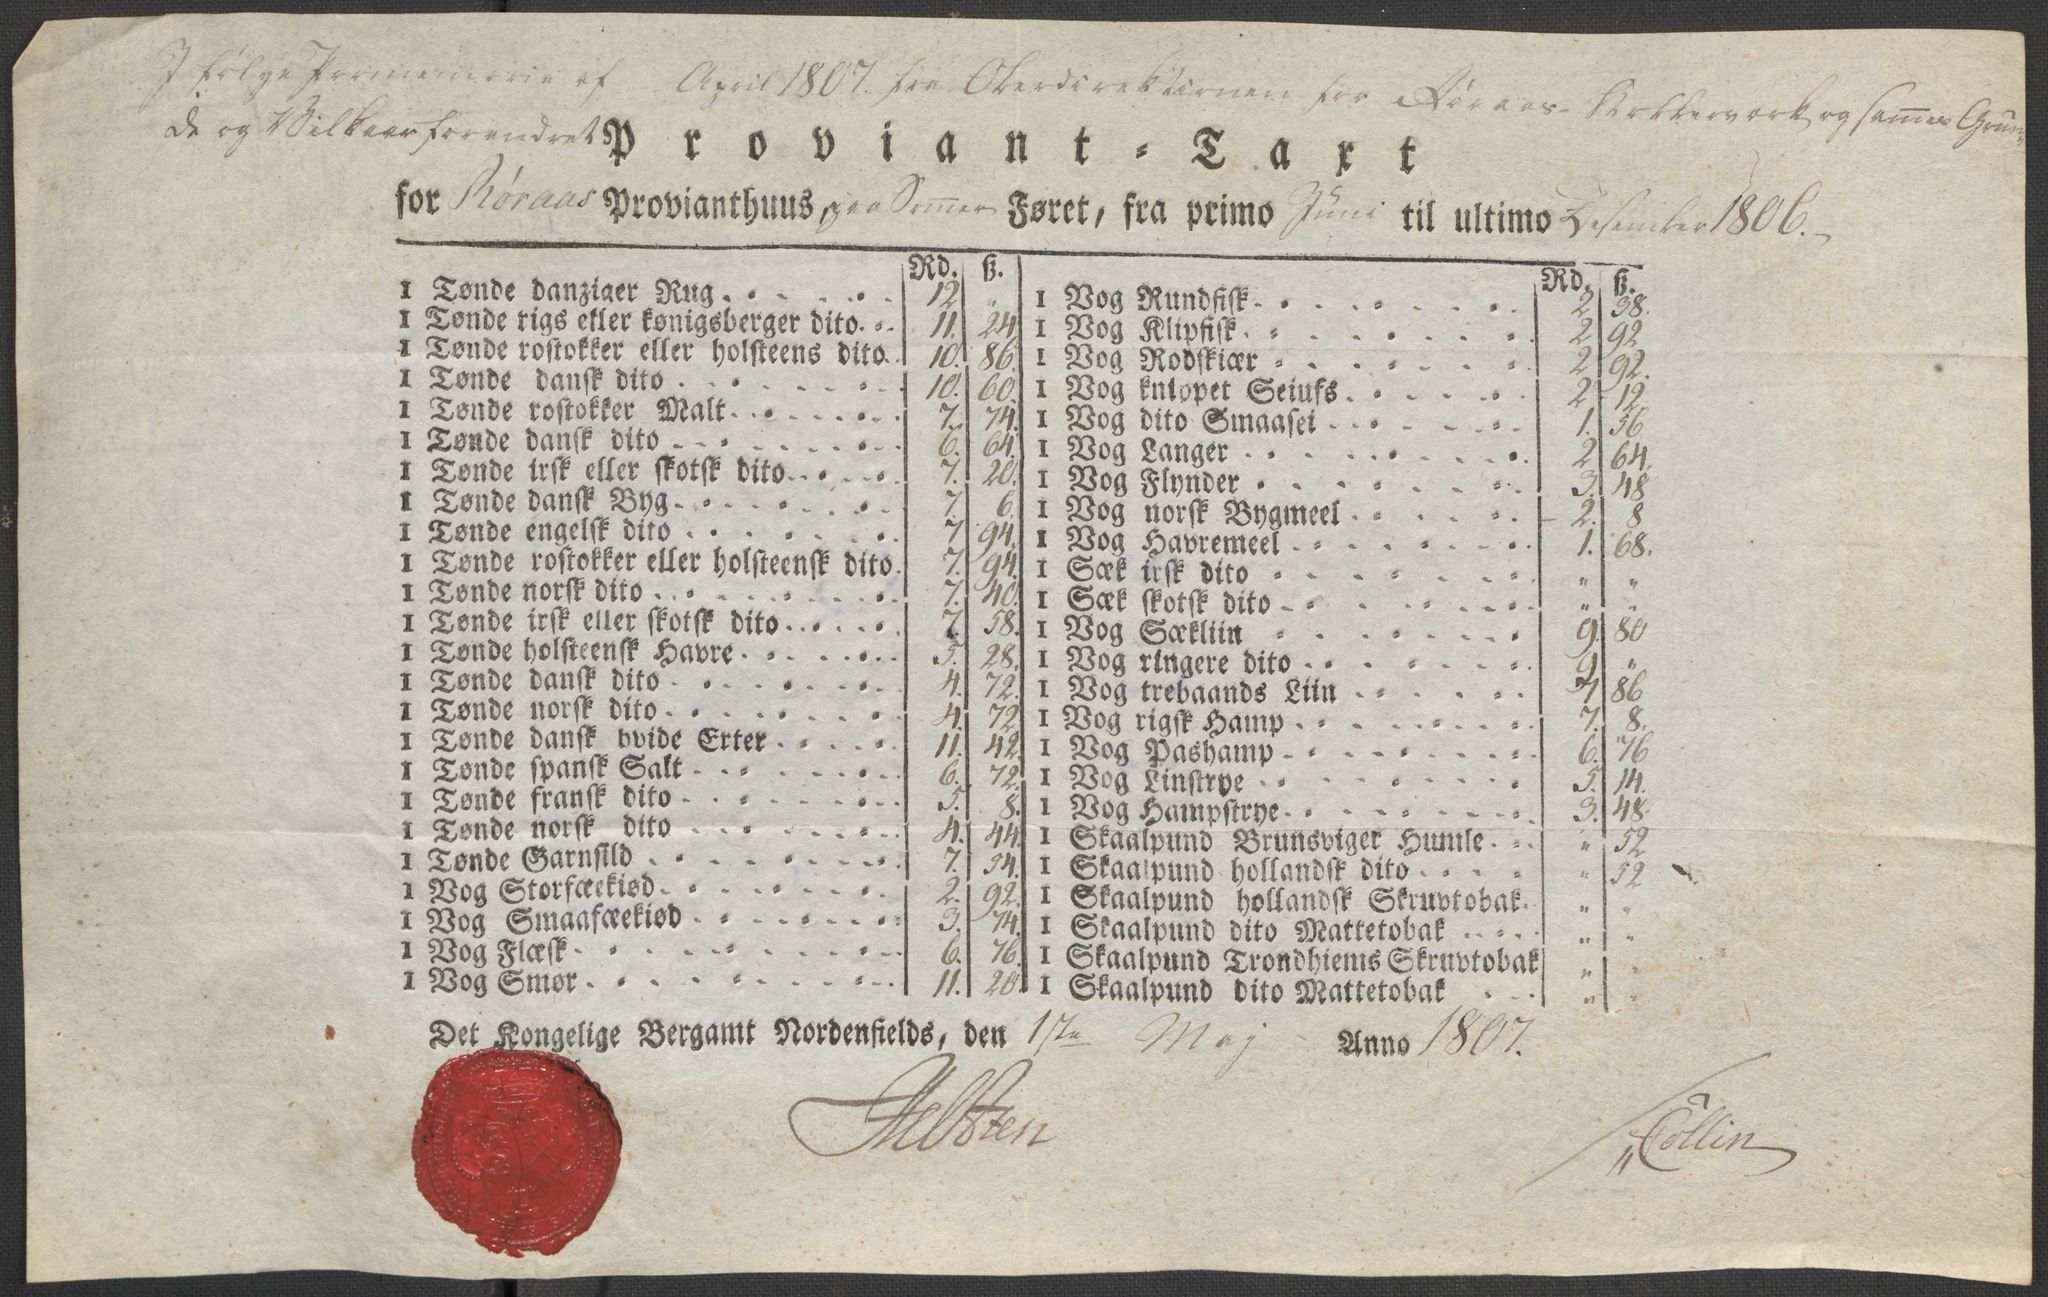 I følge Promemoria af April 1807. fra Oberdirektionen for Røraas Kobberværk og sammes Grun-
de og Vilkaar forandret
Proviant-Taxt
for Røraas Provianthuus, paa Sommer Føret, fra primo Juni til ultimo Desember 1806.
Rd. ß.
1 Tønde danziger Rug 12 "
1 Tønde rigs eller kønigsberger dito 11. 24
1 Tønde rostokker eller holsteens dito 10. 86.
1 Tønde dansk dito 10. 60.
1 Tønde rostokker Malt 7. 74.
1 Tønde dansk dito 6. 64.
1 Tønde irsk eller skotsk dito 7. 20.
1 Tønde dansk Byg 7. 6.
1 Tønde engelsk dito 7 94.
1 Tønde rostokker eller holsteensk dito 7. 94.
1 Tønde norsk dito 7. 40.
1 Tønde irsk eller skotsk dito 7 58.
1 Tønde holsteensk Havre 5. 28.
1 Tønde dansk dito 4. 72.
1 Tønde norsk dito 4. 72
1 Tønde dansk hvide Erter 11. 42.
1 Tønde spansk Salt 6. 72.
1 Tønde fransk dito 5. 8.
1 Tønde norsk dito 4. 44.
1 Tønde Garnsild 7. 54.
1 Vog Storfæekiød 2. 92.
1 Vog Smaafæekiød 3. 74.
1 Vog Flæsk 6. 76.
1 Vog Smør 11. 28
Rd. ß.
1 Vog Rundfisk 2 38.
1 Vog Klipfisk 2 92
1 Vog Rodskiær 2 92.
1 Vog knippet Seiufs 2 12
1 Vog dito Smaasei 1. 56
1 Vog Langer 2 64.
1 Vog Flynder 3. 48
1 Vog norsk Bygmeel 2. 8
1 Vog Havremeel 1. 68.
1 Sæk irsk dito " "
1 Sæk skotsk dito " "
1 Vog Sækliin 9. 80
1 Vog ringere dito 9 "
1 Vog trebaands Liin 7 86
1 Vog rigsk Hamp 7. 8.
1 Vog Pashamp 6. 76
1 Vog Linstrye 5. 14.
1 Vog Hampstrye 3. 48.
1 Skaalpund Brunsviger Humle " 52
1 Skaalpund hollandsk dito " 52
1 Skaalpund hollandsk Skruvtobak " "
1 Skaalpund dito Mattetobak " "
1 Skaalpund Trondhiems Skruvtobak " "
1 Skaalpund dito Mattetobak " "
Det Kongelige Bergamt Nordenfields, den 1ste Maj Anno 1807.
Collin